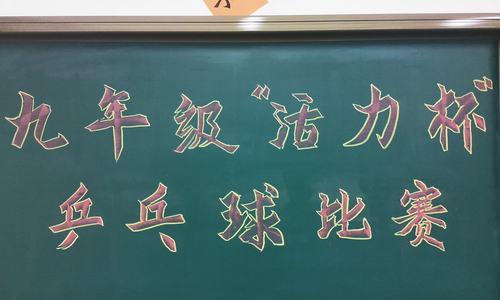 九年级“活力杯”
乒乓球比赛